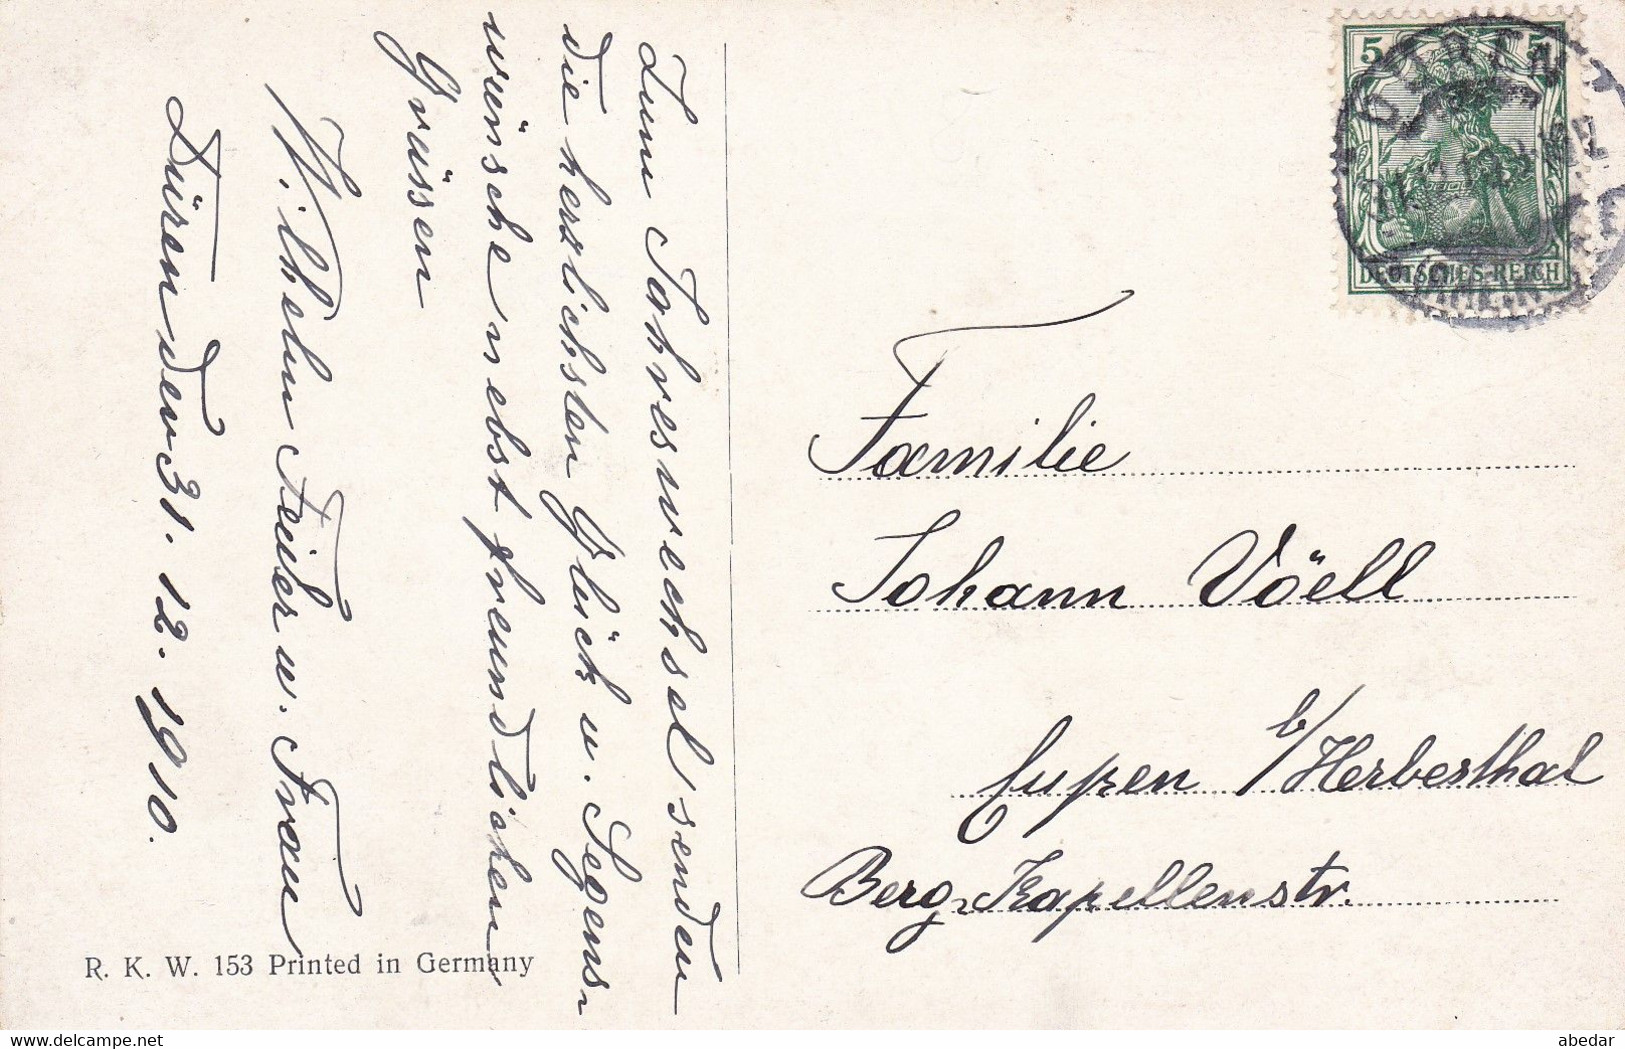 Zum Jahreswechsel senden
die herzlichsten Glück u. Segens-
wünsche nebst freundlichen
Grüssen
Wilhelm Feiser u. Frau
Düren den 31. 12. 1910.
R. K. W. 153 Printed in Germany
5 5
DÜREN
DEUTSCHES REICH
(RHEINL.)
Familie
Johann Vöell
Eupen b/Herbesthal
Berg-Kapellenstr.
abedar